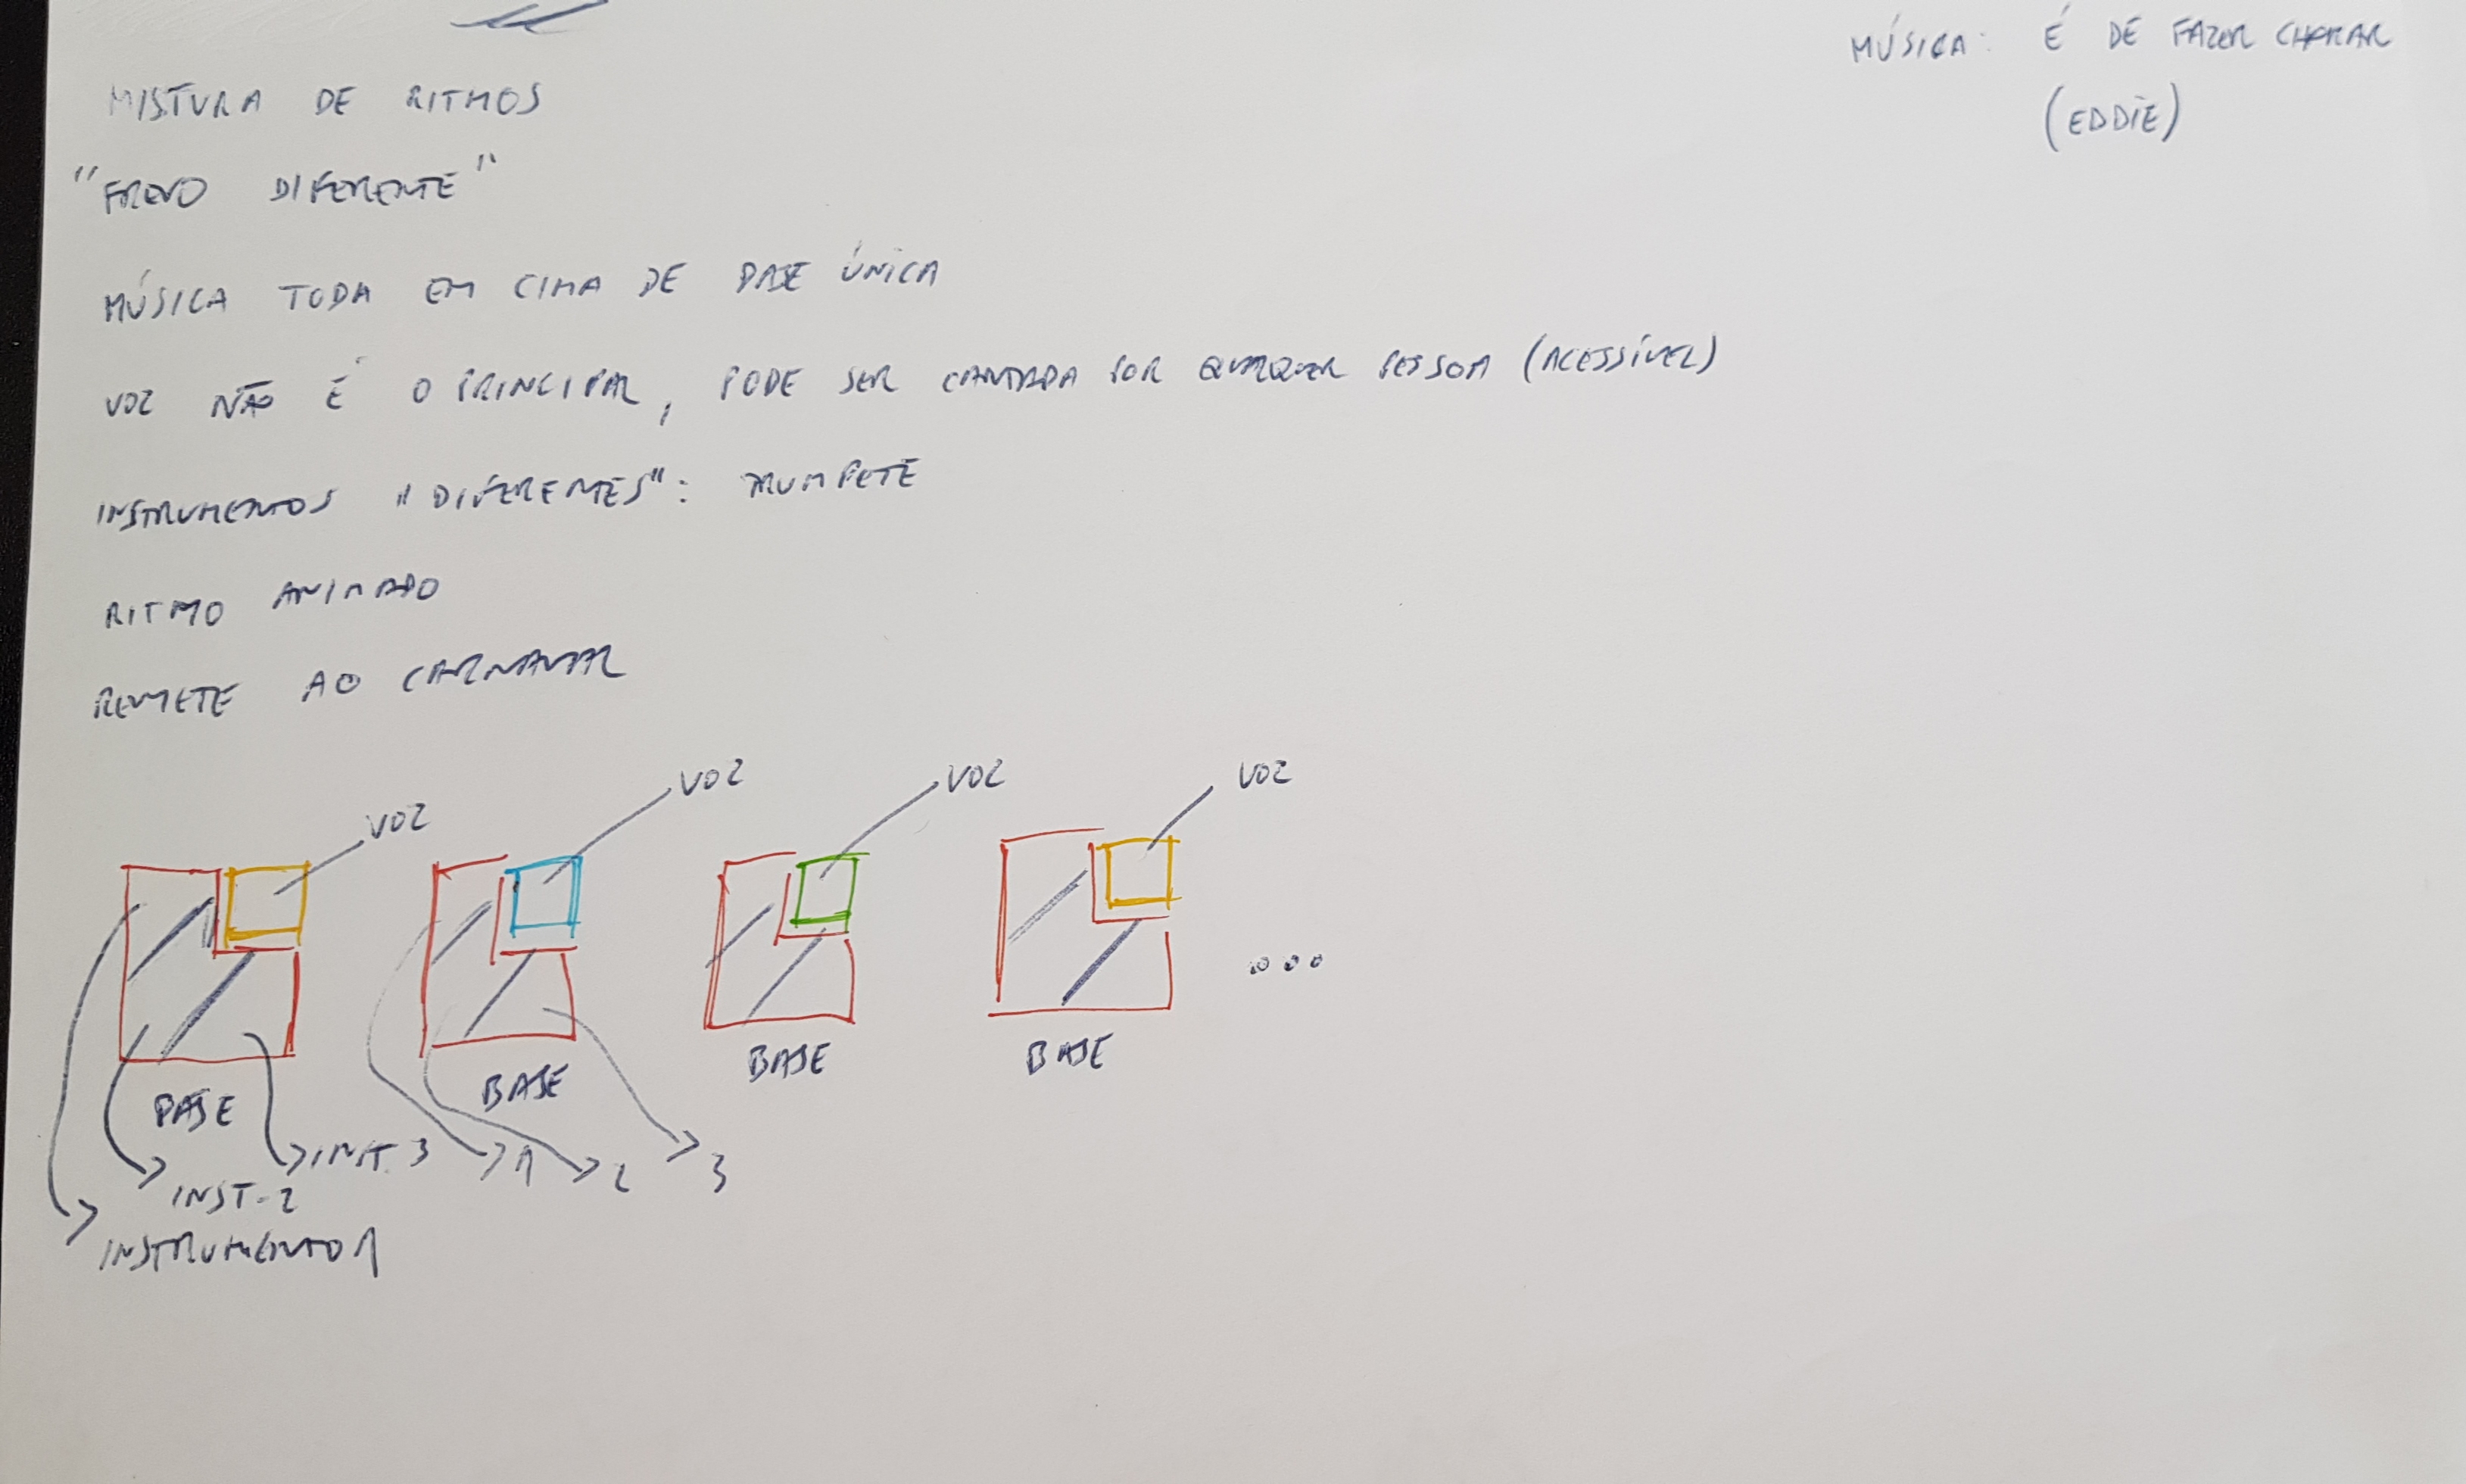 MÚSICA: É DE FAZER CHORAR
(EDDIE)
MISTURA DE RITMOS
"FREVO DIFERENTE"
MÚSICA TODA EM CIMA DE BASE ÚNICA
VOZ NÃO É O PRINCIPAL, PODE SER CANTADA POR QUALQUER PESSOA (ACESSÍVEL)
INSTRUMENTOS "DIFERENTES": TRUMPETE
RITMO ANIMADO
REMETE AO CARNAVAL
VOZ VOZ VOZ VOZ
BASE BASE BASE BASE
INST. 3 1 2 3
INST. 2
INSTRUMENTO 1